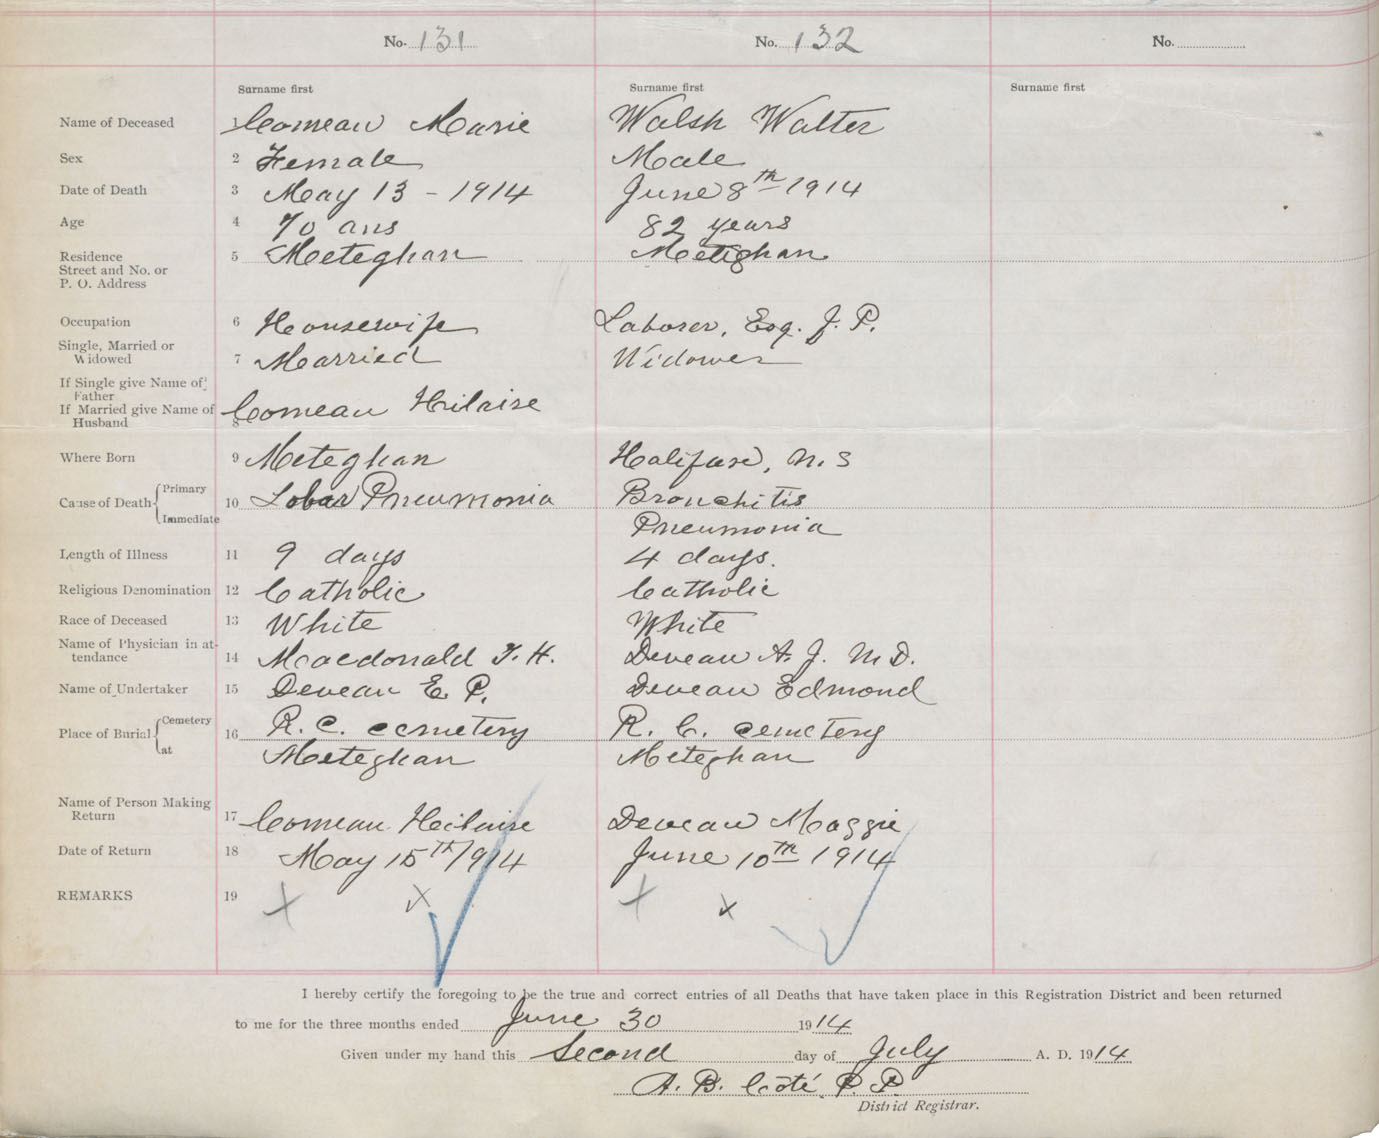 No. 131 No. 132 No.
Surname first Surname first Surname first
Name of Deceased 1 Comeau Marie Walsh Walter
Sex 2 Female Male
Date of Death 3 May 13 - 1914 June 8th 1914
Age 4 70 ans 82 years
Residence 5 Meteghan Meteghan
Street and No. or
P. O. Address
Occupation 6 Housewife Laborer, Esq. J. P.
Single, Married or
Widowed 7 Married Widower
If Single give Name of
Father
If Married give Name of 8 Comeau Hilaire
Husband
Where Born 9 Meteghan Halifax, N. S
Cause of Death { Primary 10 Lobar Pneumonia Bronchitis
Immediate Pneumonia
Length of Illness 11 9 days 4 days.
Religious Denomination 12 Catholic Catholic
Race of Deceased 13 White White
Name of Physician in at-
tendance 14 Macdonald T. H. Deveau A. J. M D.
Name of Undertaker 15 Deveau E. P. Deveau Edmond
Place of Burial { Cemetery 16 R. C. cemetery R. C. cemetery
at Meteghan Meteghan
Name of Person Making
Return 17 Comeau Hilaire Deveau Maggie
Date of Return 18 May 15th 1914 June 10th 1914
REMARKS 19 x x x x
I hereby certify the foregoing to be the true and correct entries of all Deaths that have taken place in this Registration District and been returned
to me for the three months ended June 30 1914
Given under my hand this Second day of July A. D. 1914
A. B. Côté, P. P.
District Registrar.